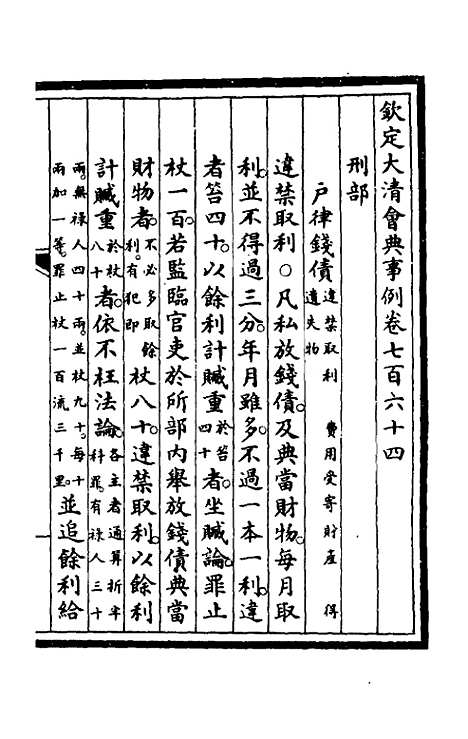 欽定大清會典事例卷七百六十四
刑部
戶律錢債違禁取利　費用受寄財產　得遺失物
違禁取利○凡私放錢債。及典當財物。每月取
利。並不得過三分。年月雖多。不過一本一利。違
者笞四十。以餘利計贓。重於笞四十者。坐贓論。罪止
杖一百。若監臨官吏於所部內舉放錢債典當
財物者。不必多取餘利。有犯即杖八十。違禁取利。以餘利
計贓。重於杖八十者。依不枉法論。各主者通算折半科罪。有祿人三十
兩。無祿人四十兩。並杖九十。每十兩加一等。罪止杖一百流三千里。並追餘利給